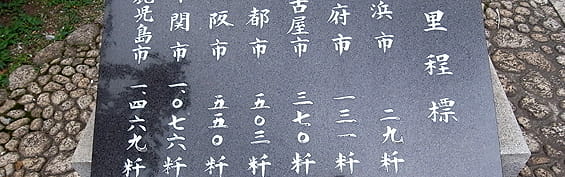 里程標
浜市 二九粁
府市 一三一粁
古屋市 三七〇粁
都市 五〇三粁
阪市 五五〇粁
関市 一、〇七六粁
鹿児島市 一、四六九粁